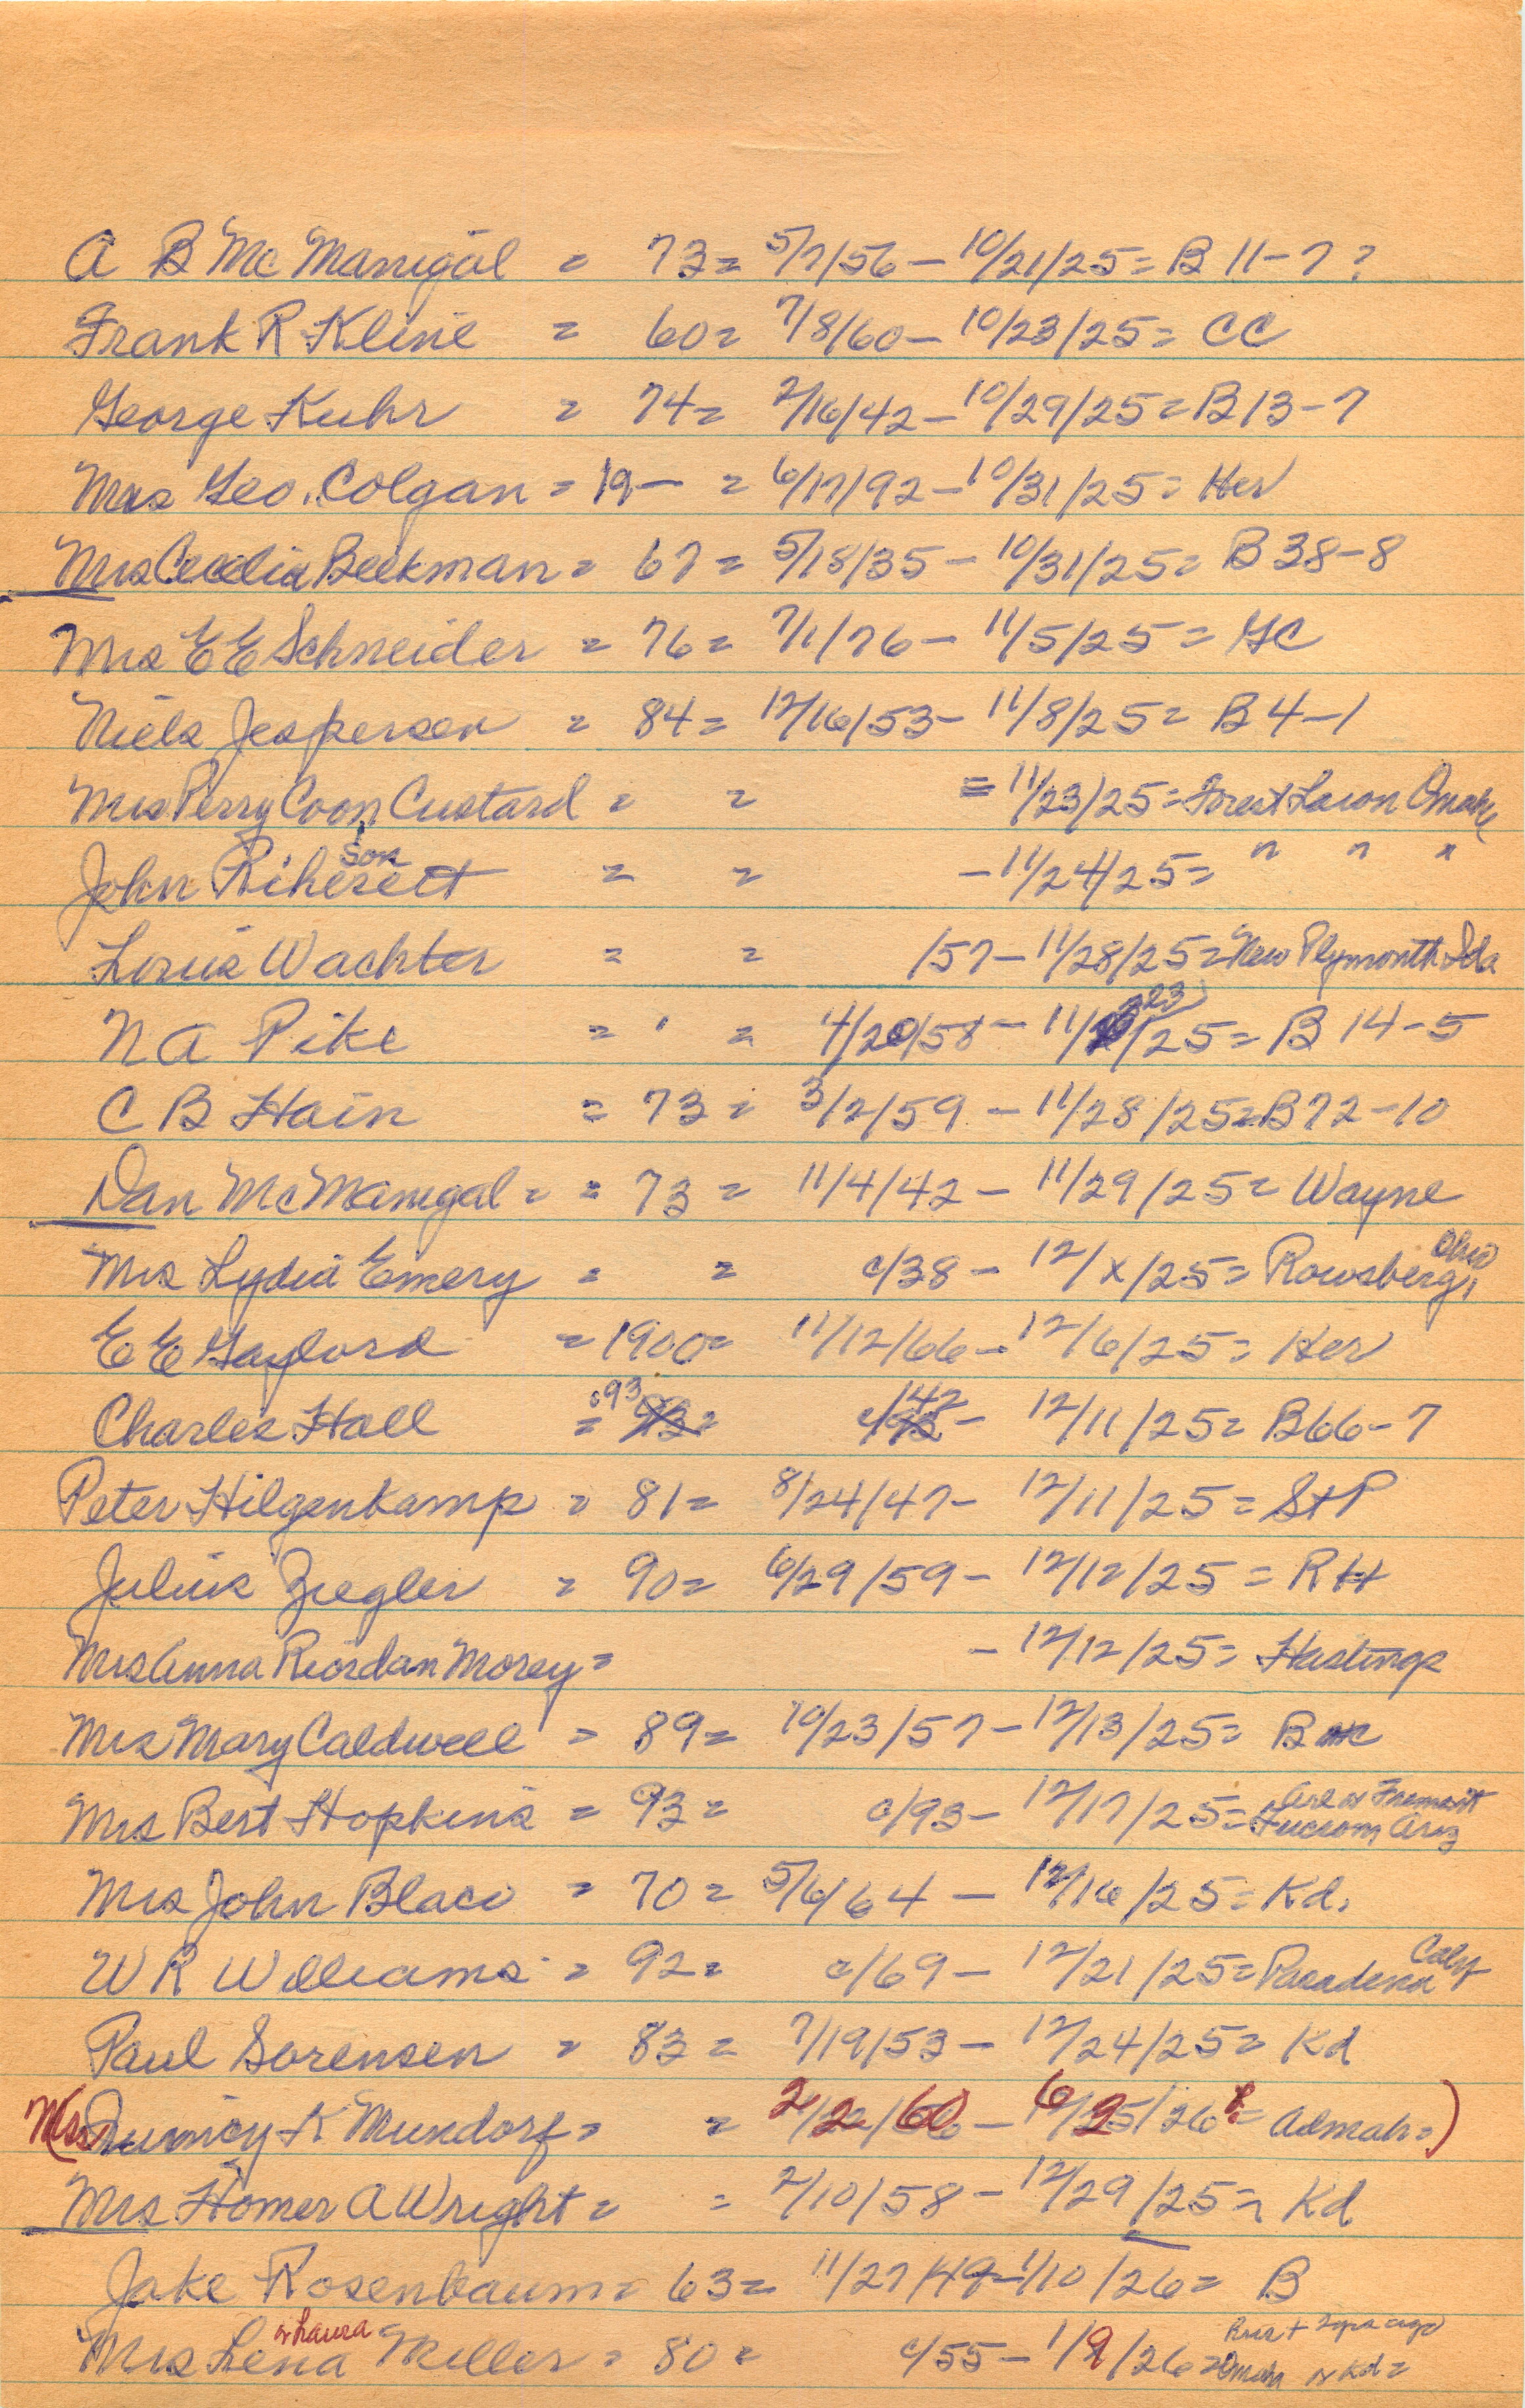 A B McManigal = 73 = 5/7/56 - 10/21/25 = B 11-7?
Frank R Kline = 60 = 7/8/60 - 10/23/25 = CC
George Kuhr = 74 = 2/16/42 - 10/29/25 = B 13-7
Mrs Geo. Colgan = 19- = 6/17/92 - 10/31/25 = Her
Mrs Cecelia Beekman = 67 = 5/18/35 - 10/31/25 = B 38-8
Mrs E E Schneider = 76 = 7/1/76 - 11/5/25 = GC
Niels Jespersen = 84 = 12/16/53 - 11/8/25 = B 4-1
Mrs Perry Coon Custard = = = 11/23/25 = Forest Lawn Omaha
son
John = = - 11/24/25 = " " "
Louis Wachter = = /57 - 11/28/25 = New Plymouth Ida
23
N A Pike = ' = 4/20/58 - 11/ /25 = B 14-5
C B Hain = 73 = 3/2/59 - 11/28/25 = B 72-10
Dan McManigal = = 73 = 11/4/42 - 11/29/25 = Wayne
Mrs Lydia Emery = = c/38 - 12/x/25 = Rowsberg, Ohio
E E Gaylord = 1900 = 11/12/66 - 12/6/25 = Her
c93 142
Charles Hall = 93 = c/93 - 12/11/25 = B 66-7
Peter Hilgenkamp = 81 = 8/24/47 - 12/11/25 = St P
Julius Ziegler = 90 = 6/29/59 - 12/12/25 = RH
Mrs Anna Riordan Morey = - 12/12/25 = Hastings
Mrs Mary Caldwell = 89 = 10/23/57 - 12/13/25 = B
Arl or Fremont
Mrs Bert Hopkins = 93 = c/93 - 12/17/25 = Tucson, Ariz
Mrs John Blaco = 70 = 5/6/64 - 12/16/25 = Kd.
W R Williams = 92 = c/69 - 12/21/25 = Pasadena Calif
Paul Sorensen = 83 = 7/19/53 - 12/24/25 = Kd
(Mrs Quincy K Mundorf = = 2/22/60 - 6/25/26 = Admah =)
Mrs Homer A Wright = = 2/10/58 - 12/29/25 = Kd
Jake Rosenbaum = 63 = 11/27/49 - 1/10/26 = B
or Laura
Mrs Lena Miller = 80 = c/55 - 1/9/26 = Omaha or Kd =